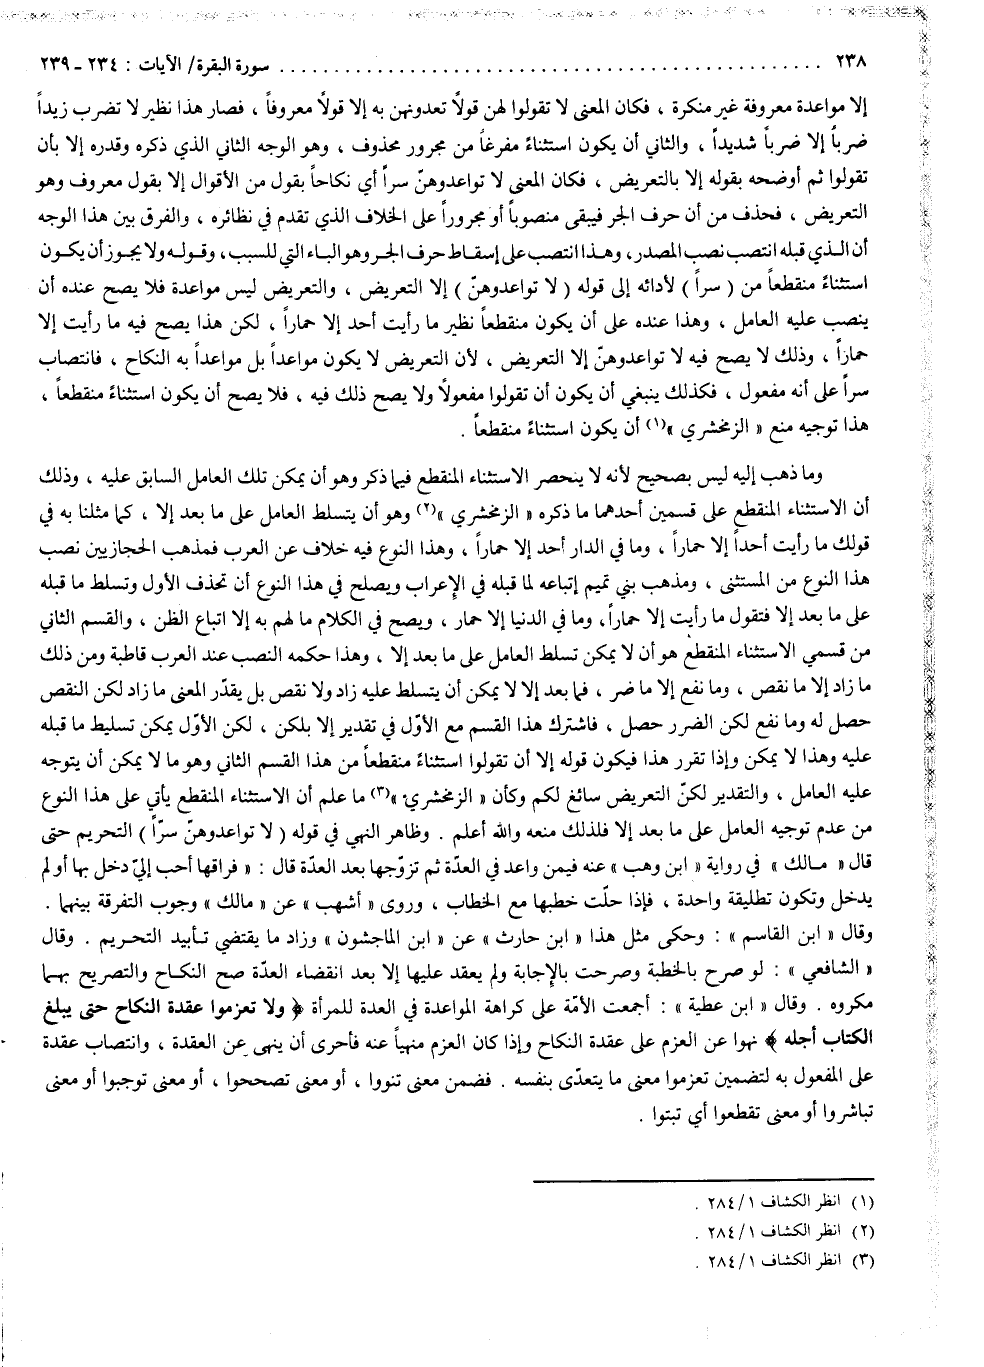 ٢٣٨ ............................................................ سورة البقرة/ الآيات : ٢٣٤ ـ ٢٣٩
إلا مواعدة معروفة غير منكرة ، فكان المعنى لا تقولوا لهن قولاً تعدونهن به إلا قولاً معروفاً ، فصار هذا نظير لا تضرب زيداً
ضرباً إلا ضرباً شديداً ، والثاني أن يكون استثناءً مفرغاً من مجرور محذوف ، وهو الوجه الثاني الذي ذكره وقدره إلا بأن
تقولوا ثم أوضحه بقوله إلا بالتعريض ، فكان المعنى لا تواعدوهنّ سراً أي نكاحاً بقول من الأقوال إلا بقول معروف وهو
التعريض ، فحذف من أن حرف الجر فيبقى منصوباً أو مجروراً على الخلاف الذي تقدم في نظائره ، والفرق بين هذا الوجه
أن الذي قبله انتصب نصب المصدر، وهذا انتصب على إسقاط حرف الجر وهو الباء التي للسبب، وقوله ولا يجوز أن يكون
استثناءً منقطعاً من ( سراً ) لأدائه إلى قوله ( لا تواعدوهنّ ) إلا التعريض ، والتعريض ليس مواعدة فلا يصح عنده أن
ينصب عليه العامل ، وهذا عنده على أن يكون منقطعاً نظير ما رأيت أحد إلا حماراً ، لكن هذا يصح فيه ما رأيت إلا
حماراً ، وذلك لا يصح فيه لا تواعدوهنّ إلا التعريض ، لأن التعريض لا يكون مواعداً بل مواعداً به النكاح ، فانتصاب
سراً على أنه مفعول ، فكذلك ينبغي أن يكون أن تقولوا مفعولاً ولا يصح ذلك فيه ، فلا يصح أن يكون استثناءً منقطعاً ،
هذا توجيه منع « الزمخشري »(١) أن يكون استثناءً منقطعاً .
وما ذهب إليه ليس بصحيح لأنه لا ينحصر الاستثناء المنقطع فيما ذكر وهو أن يمكن تلك العامل السابق عليه ، وذلك
أن الاستثناء المنقطع على قسمين أحدهما ما ذكره « الزمخشري »(٢) وهو أن يتسلط العامل على ما بعد إلا ، كما مثلنا به في
قولك ما رأيت أحداً إلا حماراً ، وما في الدار أحد إلا حماراً ، وهذا النوع فيه خلاف عن العرب فمذهب الحجازيين نصب
هذا النوع من المستثنى ، ومذهب بني تميم إتباعه لما قبله في الإعراب ويصلح في هذا النوع أن تحذف الأول وتسلط ما قبله
على ما بعد إلا فتقول ما رأيت إلا حماراً، وما في الدنيا إلا حمار ، ويصح في الكلام ما لهم به إلا اتباع الظن ، والقسم الثاني
من قسمي الاستثناء المنقطع هو أن لا يمكن تسلط العامل على ما بعد إلا ، وهذا حكمه النصب عند العرب قاطبة ومن ذلك
ما زاد إلا ما نقص ، وما نفع إلا ما ضر ، فما بعد إلا لا يمكن أن يتسلط عليه زاد ولا نقص بل يقدّر المعنى ما زاد لكن النقص
حصل له وما نفع لكن الضرر حصل ، فاشترك هذا القسم مع الأوّل في تقدير إلا بلكن ، لكن الأوّل يمكن تسليط ما قبله
عليه وهذا لا يمكن وإذا تقرر هذا فيكون قوله إلا أن تقولوا استثناءً منقطعاً من هذا القسم الثاني وهو ما لا يمكن أن يتوجه
عليه العامل ، والتقدير لكنّ التعريض سائغ لكم وكأن « الزمخشري »(٣) ما علم أن الاستثناء المنقطع يأتي على هذا النوع
من عدم توجيه العامل على ما بعد إلا فلذلك منعه والله أعلم . وظاهر النهي في قوله ( لا تواعدوهنّ سرّاً ) التحريم حتى
قال « مالك » في رواية « ابن وهب » عنه فيمن واعد في العدّة ثم تزوّجها بعد العدّة قال : « فراقها أحب إليّ دخل بها أو لم
يدخل وتكون تطليقة واحدة ، فإذا حلّت خطبها مع الخطاب ، وروى « أشهب » عن « مالك » وجوب التفرقة بينهما .
وقال « ابن القاسم » : وحكى مثل هذا « ابن حارث » عن « ابن الماجشون » وزاد ما يقتضي تأبيد التحريم . وقال
« الشافعي » : لو صرح بالخطبة وصرحت بالإجابة ولم يعقد عليها إلا بعد انقضاء العدّة صح النكاح والتصريح بهما
مكروه . وقال « ابن عطية » : أجمعت الأمّة على كراهة المواعدة في العدة للمرأة ﴿ ولا تعزموا عقدة النكاح حتى يبلغ
الكتاب أجله ﴾ نهوا عن العزم على عقدة النكاح وإذا كان العزم منهياً عنه فأحرى أن ينهى عن العقدة ، وانتصاب عقدة
على المفعول به لتضمين تعزموا معنى ما يتعدّى بنفسه . فضمن معنى تنووا ، أو معنى تصححوا ، أو معنى توجبوا أو معنى
تباشروا أو معنى تقطعوا أي تبتوا .
(١) انظر الكشاف ٢٨٤/١ .
(٢) انظر الكشاف ٢٨٤/١ .
(٣) انظر الكشاف ٢٨٤/١ .